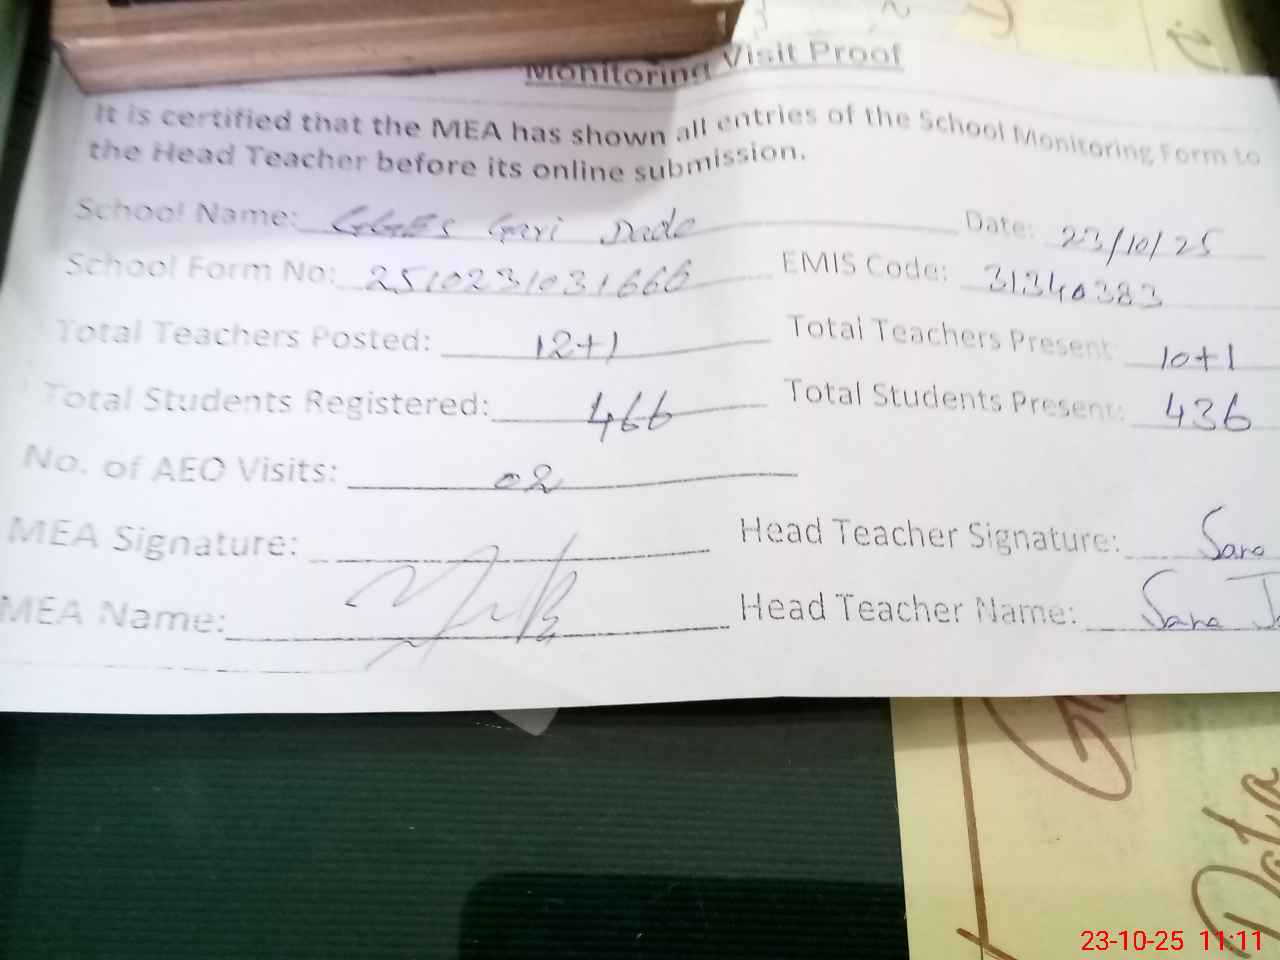 Monitoring Visit Proof
It is certified that the MEA has shown all entries of the School Monitoring Form to
the Head Teacher before its online submission.
School Name: GGES Gari Dado Date: 23/10/25
School Form No: 2510231031666 EMIS Code: 31340383
Total Teachers Posted: 12+1 Total Teachers Present: 10+1
Total Students Registered: 466 Total Students Present: 436
No. of AEO Visits: 02
MEA Signature: Head Teacher Signature: Sara
MEA Name: Head Teacher Name: Sana
Data
23-10-25 11:11